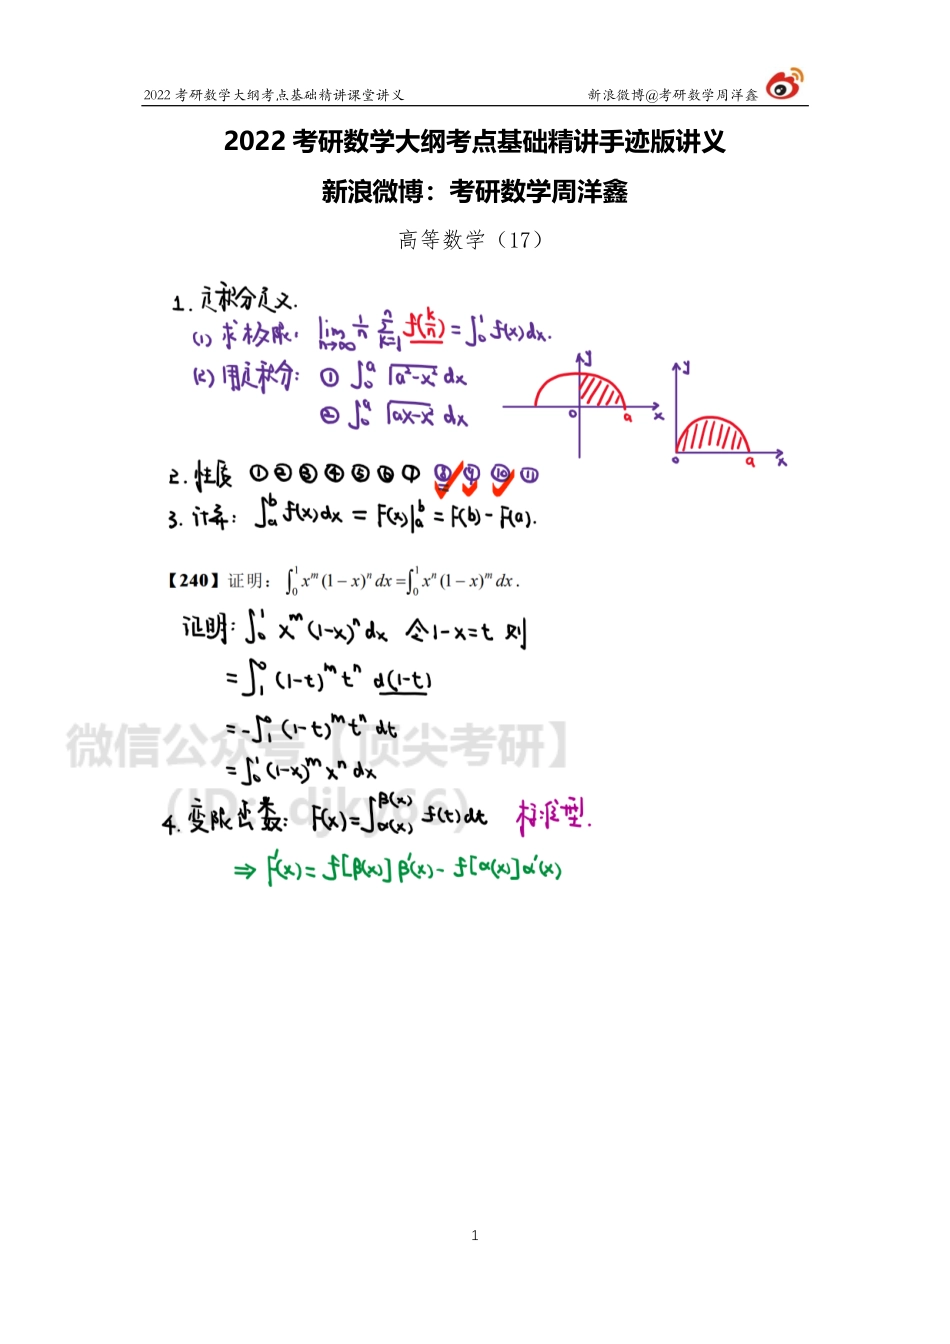 2022 考研数学大纲考点基础精讲课堂讲义 新浪微博@考研数学周洋鑫
2022 考研数学大纲考点基础精讲手迹版讲义
新浪微博：考研数学周洋鑫
高等数学（17）
1. 定积分定义.
(1) 求极限: lim_{n→∞} 1/n ∑_{k=1}^{n} f(k/n) = ∫_0^1 f(x)dx.
(2) 用定积分: ① ∫_0^a √(a²-x²) dx
② ∫_0^a √(ax-x²) dx
y
0 a x
y
0 a x
2. 性质 ① ② ③ ④ ⑤ ⑥ ⑦ ⑧ ⑨ ⑩ ⑪
3. 计算: ∫_a^b f(x)dx = F(x)|_a^b = F(b) - F(a).
【240】证明: ∫_0^1 x^m (1-x)^n dx = ∫_0^1 x^n (1-x)^m dx .
证明: ∫_0^1 x^m (1-x)^n dx 令1-x=t 则
= ∫_1^0 (1-t)^m t^n d(1-t)
= -∫_1^0 (1-t)^m t^n dt
= ∫_0^1 (1-x)^m x^n dx
微信公众号【顶尖考研】
(ID: djky66)
4. 变限函数: F(x)=∫_{α(x)}^{β(x)} f(t)dt 标准型.
⇒ F'(x) = f[β(x)] β'(x) - f[α(x)] α'(x)
1